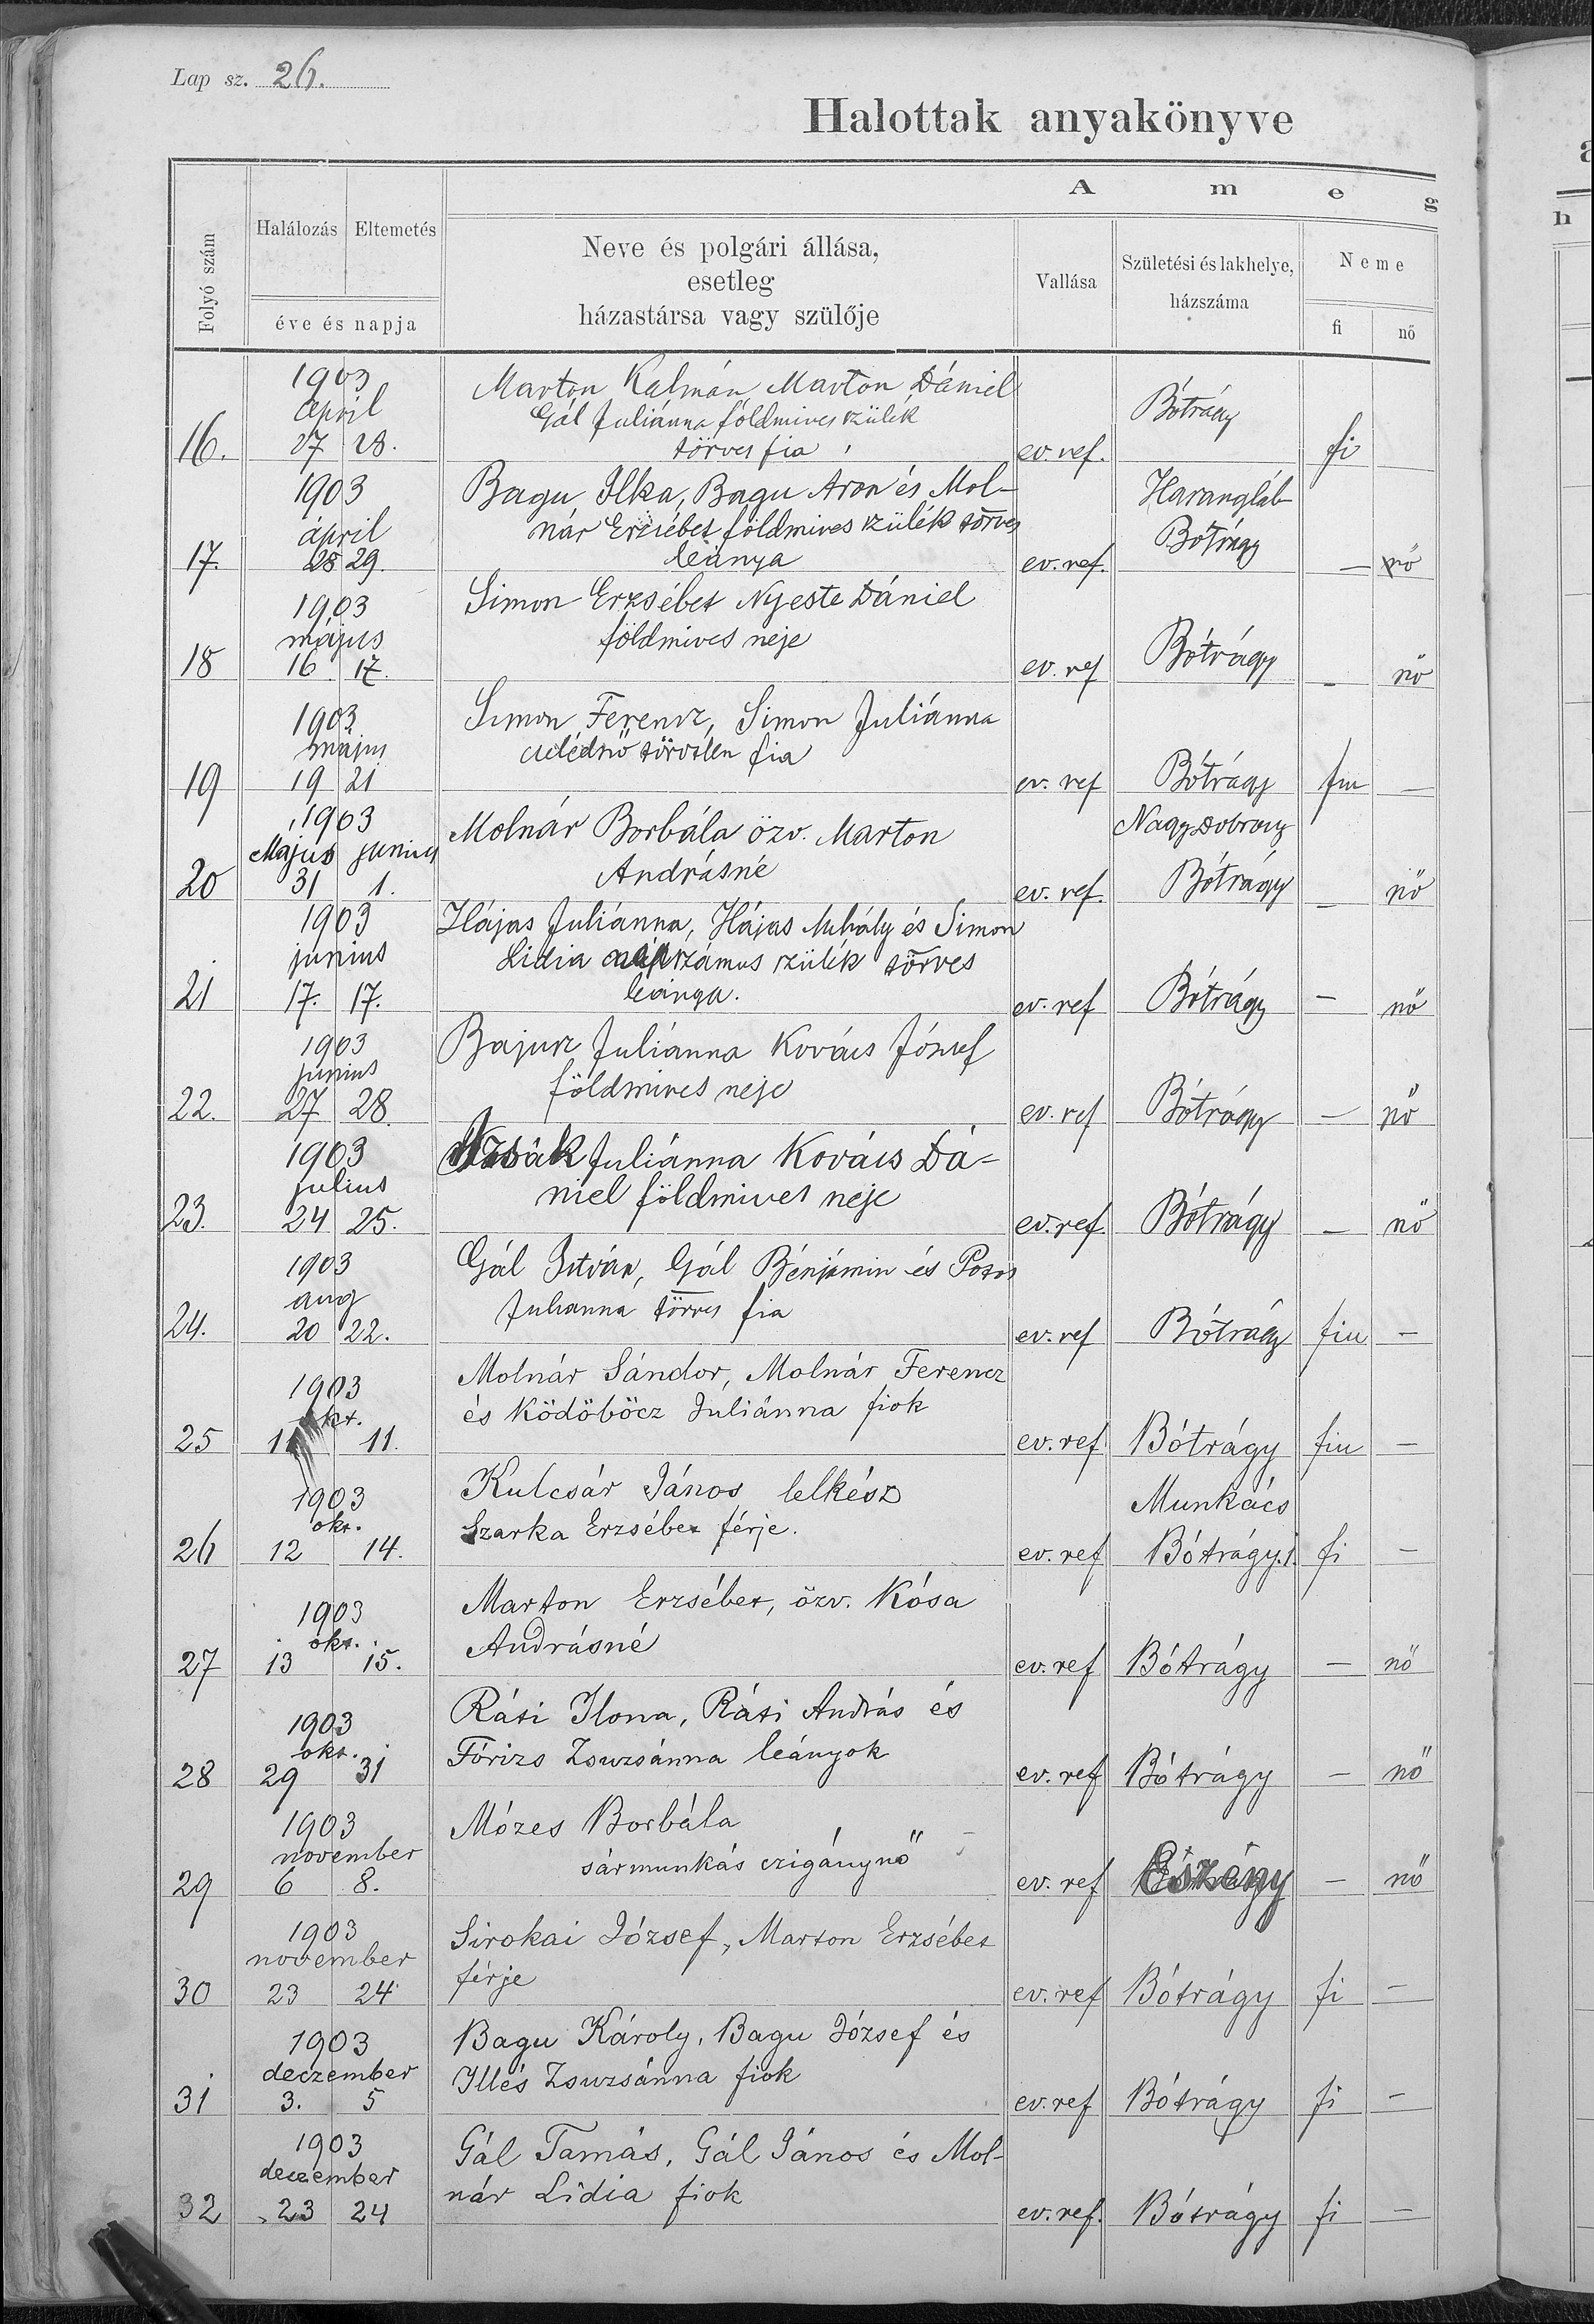 Lap sz. 26.
Halottak anyakönyve
A m e g
Folyó szám
Halálozás Eltemetés
éve és napja
Neve és polgári állása,
esetleg
házastársa vagy szülője
Vallása
Születési és lakhelye,
házszáma
Neme
fi nő
1903
april
16. 27 28.
Marton Kalmán, Marton Dániel
Gál Juliánna földmives szülék
törves fia
ev. ref. Bótrágy fi
1903
ápril
17. 28 29.
Bagu Ilka, Bagu Áron és Mol-
nár Erzsébet földmives szülék törves
leánya
ev. ref. Harangláb
Bótrágy — nő
1903
május
18 16 17.
Simon Erzsébet Nyeste Dániel
földmives neje
ev. ref Bótrágy — nő
1903
május
19 19 21
Simon Ferencz, Simon Juliánna
cselédnő törvtlen fia
ev. ref Bótrágy fiu —
1903
Május junius
20 31 1.
Molnár Borbála özv. Marton
Andrásné
ev. ref. Nagydobrony
Bótrágy — nő
1903
junius
21 17. 17.
Hájas Juliánna, Hájas Mihály és Simon
Lidia napszámos szülék törves
leánya.
ev. ref Bótrágy — nő
1903
junius
22. 27 28.
Bajusz Juliánna Kovács József
földmives neje
ev. ref Bótrágy — nő
1903
julius
23. 24 25.
Izsák Juliánna Kovács Dá-
niel földmives neje
ev. ref. Bótrágy — nő
1903
aug
24. 20 22.
Gál István, Gál Bénjámin és
Julianna törves fia
ev. ref Bótrágy fiu —
1903
okt.
25 11.
Molnár Sándor, Molnár Ferencz
és Ködöböcz Juliánna fiok
ev. ref Bótrágy fiu —
1903
okt.
26 12 14.
Kulcsár János lelkész
Szarka Erzsébet férje.
ev. ref Munkács
Bótrágy. 1. fi —
1903
okt.
27 13 15.
Marton Erzsébet, özv. Kósa
Andrásné
ev. ref Bótrágy — nő
1903
okt.
28 29 31
Ráti Ilona, Ráti András és
Fórizs Zsuzsánna leányok
ev. ref Bótrágy — nő
1903
november
29 6 8.
Mózes Borbála
sármunkás czigánynő
ev. ref Eszény — nő
1903
november
30 23 24
Sirokai József, Marton Erzsébet
férje
ev. ref Bótrágy fi —
1903
deczember
31 3. 5
Bagu Károly, Bagu József és
Illés Zsuzsánna fiok
ev. ref Bótrágy fi —
1903
deczember
32 23 24
Gál Tamás, Gál János és Mol-
nár Lidia fiok
ev. ref. Bótrágy fi —